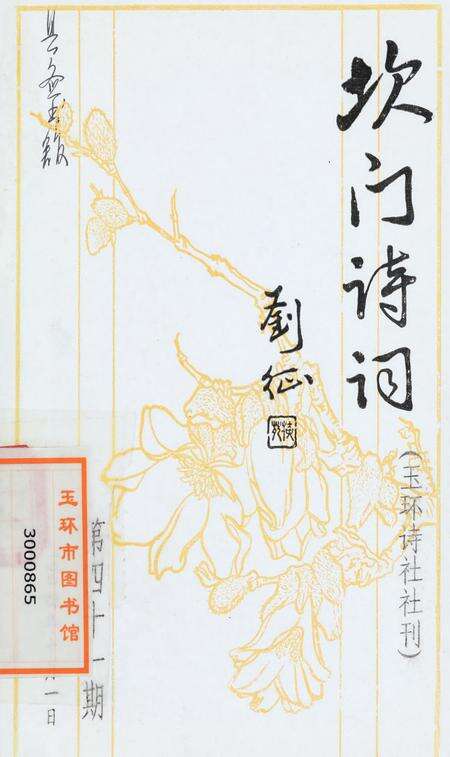 坎门诗词
(玉环诗社社刊)
劉征
第四十一期
一日
玉环市图书馆
3000865